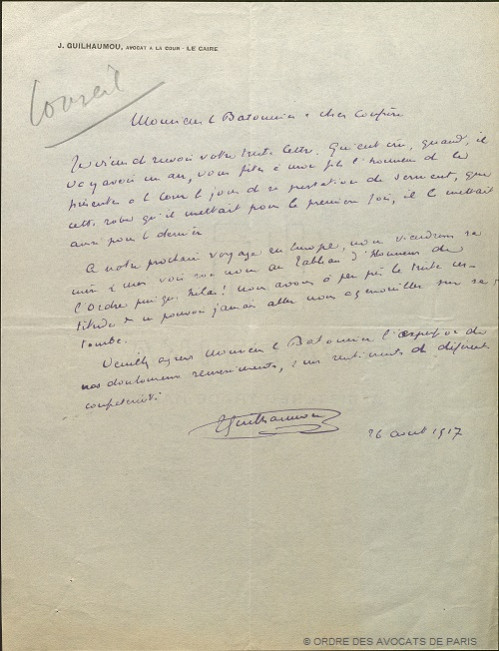 J. GUILHAUMOU, AVOCAT A LA COUR - LE CAIRE
Conseil
Monsieur le Batonnier & cher Confrère
Je viens de recevoir votre triste lettre. Qui eut cru, quand, il
y avait un an, vous fites à mon fils l'honneur de le
présenter à la Cour le jour de sa prestation de serment, que
cette robe qu'il mettait pour la première fois, il la mettait
aussi pour la dernière
A notre prochain voyage en Europe, nous viendrons sa
mère & moi voir son nom au Tableau d'Honneur de
l'Ordre puisque hélas! nous avons à peu près la triste cer-
titude de ne pouvoir jamais aller nous agenouiller sur sa
tombe.
Veuillez agréer Monsieur le Batonnier l'expression de
nos douloureux remerciements, & nos sentiments de
Guilhaumou
26 1917
© ORDRE DES AVOCATS DE PARIS